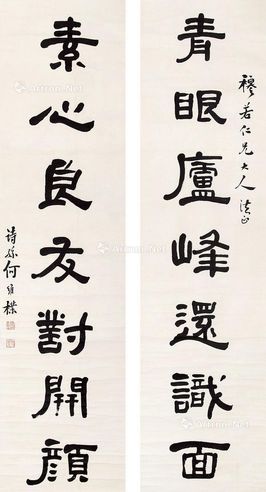 穆若仁兄大人法正
青眼廬峰還識面
素心良友對開顏
詩孫何維樸
Artron.Net
Artron.Net